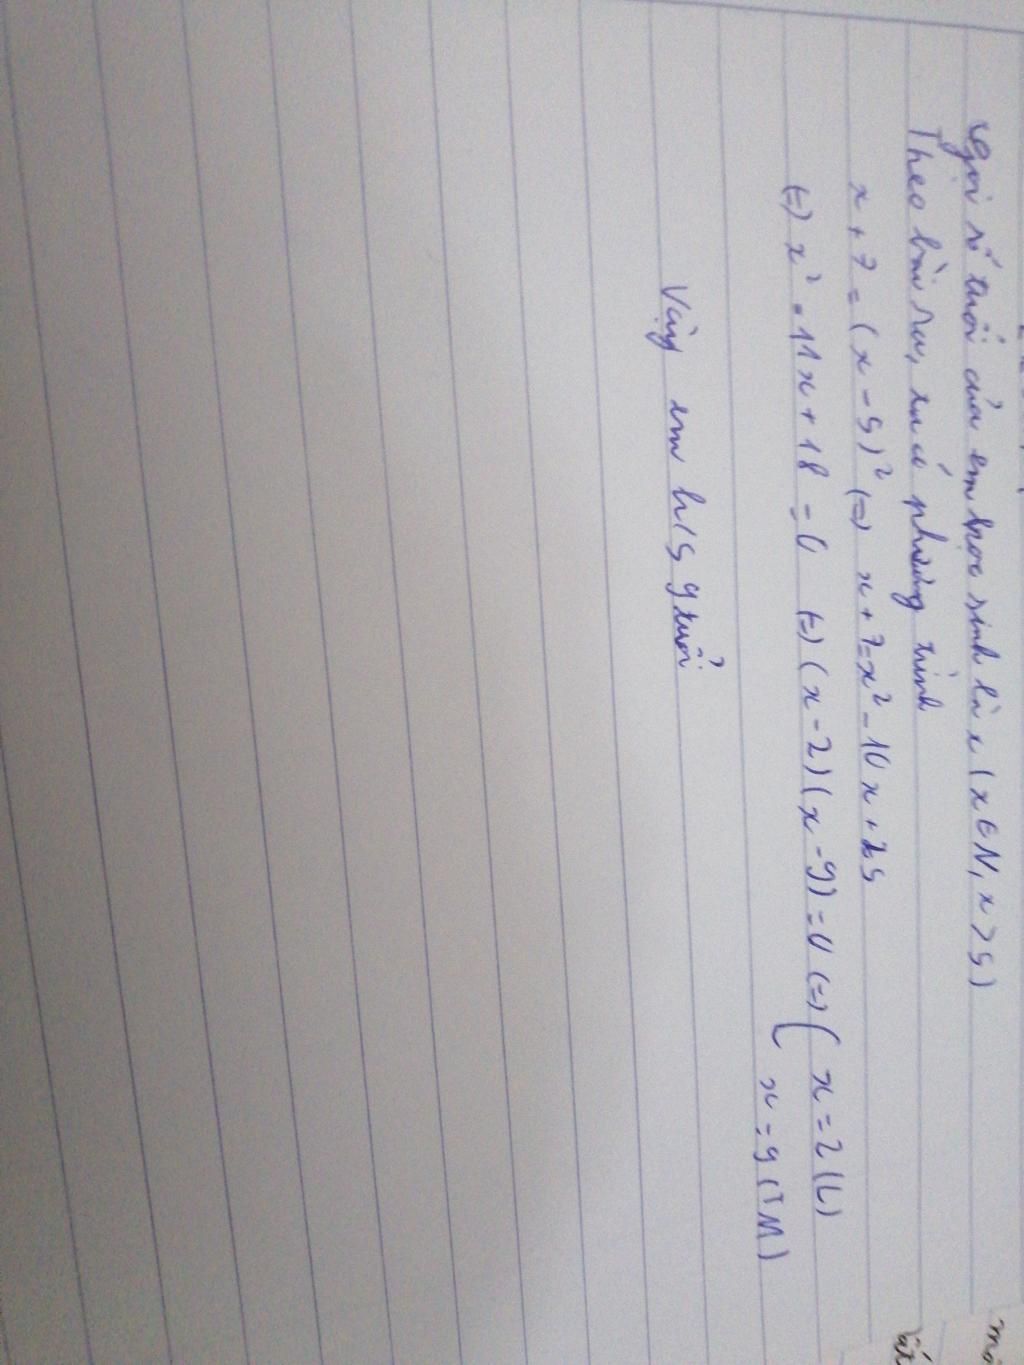 Gọi số tuổi của em học sinh là x (x∈N, x > 5)
Theo bài ra, ta có phương trình
x + 7 = (x - 5)² (=) x + 7 = x² - 10x + 25
(=) x² - 11x + 18 = 0 (=) (x - 2)(x - 9) = 0 (=) ( x = 2 (L)
( x = 9 (TM)
Vậy em h/s 9 tuổi